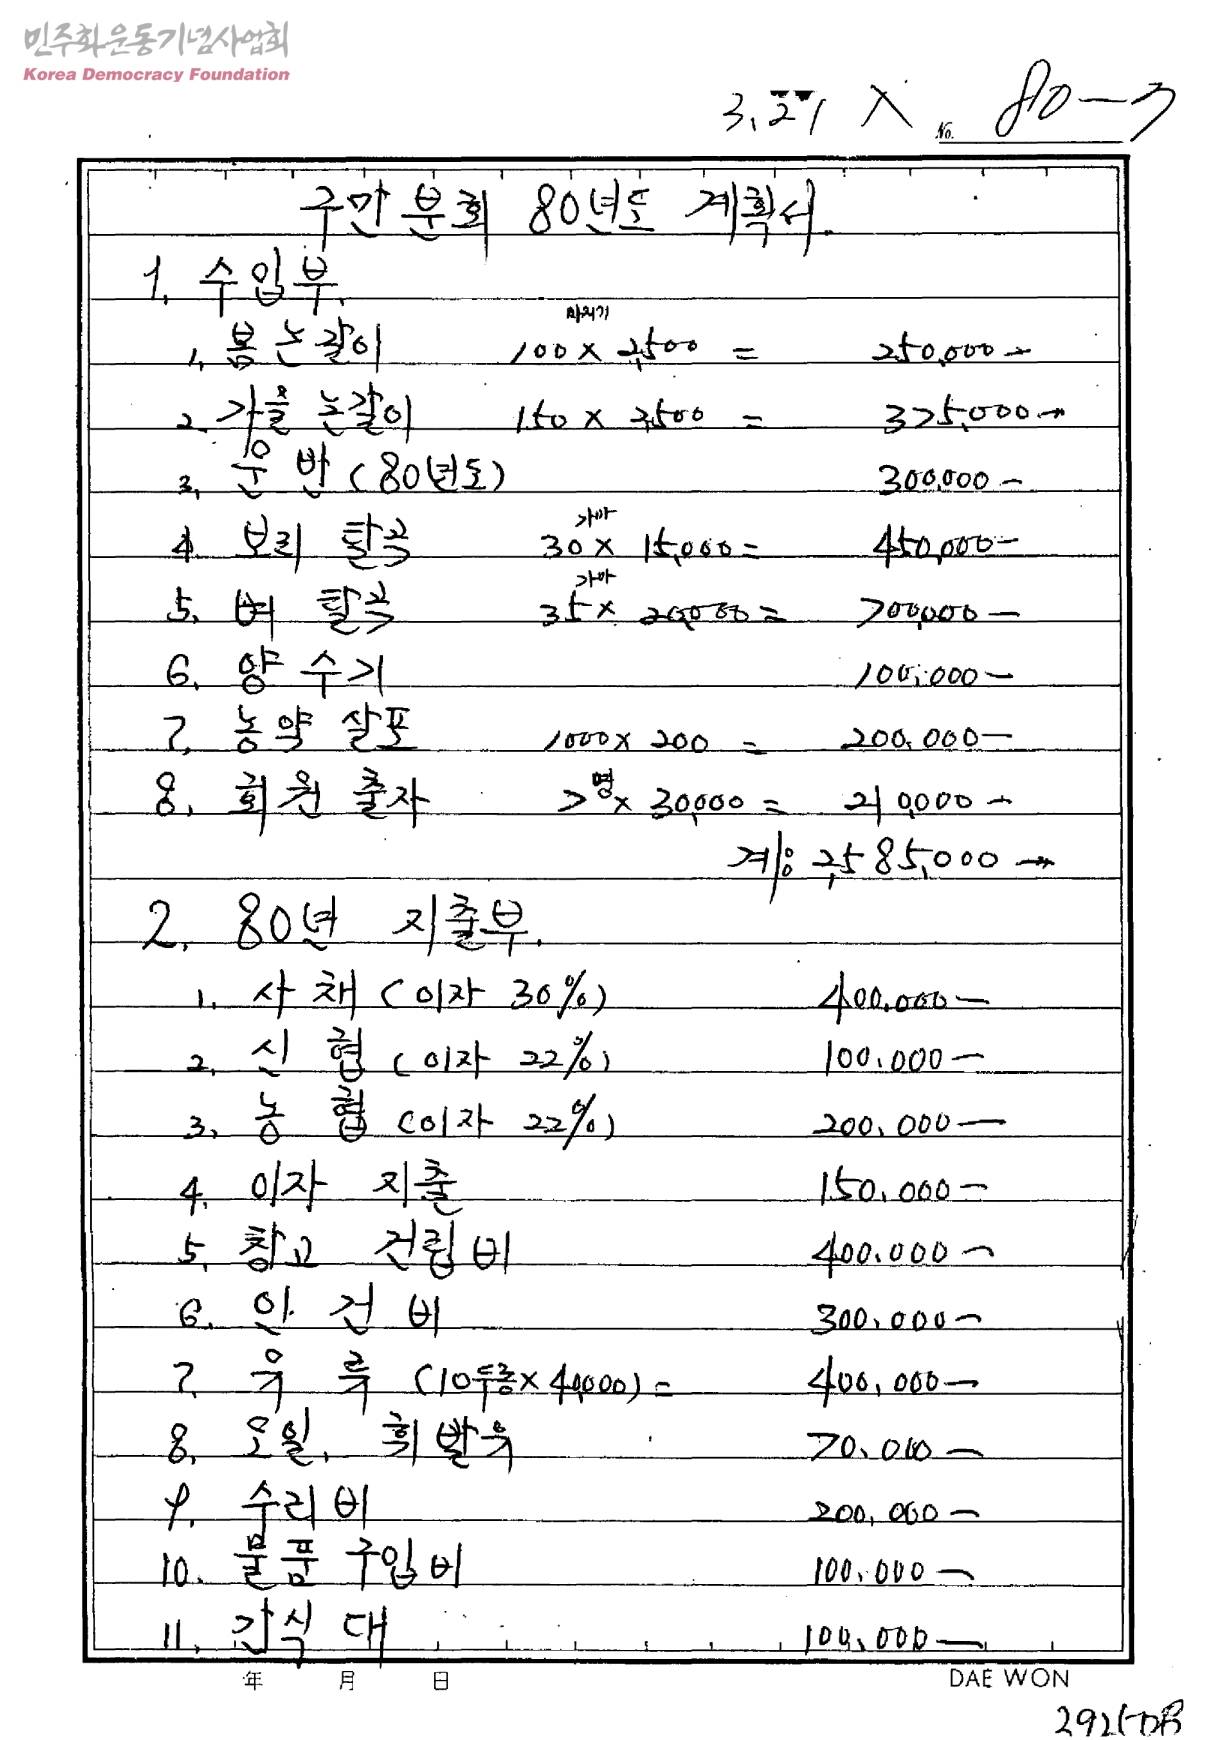 민주화운동기념사업회
Korea Democracy Foundation
3, 27, No. 80-7
구만 분회 80년도 계획서.
1. 수입부.
1. 봄 논갈이 100 마지기 × 2,500 = 250,000 -
2. 가을 논갈이 150 × 2,500 = 375,000 -
3. 운반 (80년도) 300,000 -
4. 보리 탈곡 30 가마 × 15,000 = 450,000 -
5. 벼 탈곡 35 가마 × 20,000 = 700,000 -
6. 양수기 100,000 -
7. 농약 살포 1000 × 200 = 200,000 -
8. 회원 출자 7명 × 30,000 = 210,000 -
계: 2,585,000 -
2. 80년 지출부.
1. 사채 (이자 30%) 400,000 -
2. 신협 (이자 22%) 100,000 -
3. 농협 (이자 22%) 200,000 -
4. 이자 지출 150,000 -
5. 창고 건립비 400,000 -
6. 인건비 300,000 -
7. 유류 (10두롱 × 40,000) = 400,000 -
8. 오일, 휘발유 70,000 -
9. 수리비 200,000 -
10. 물품 구입비 100,000 -
11. 간식대 100,000 -
年 月 日 DAE WON